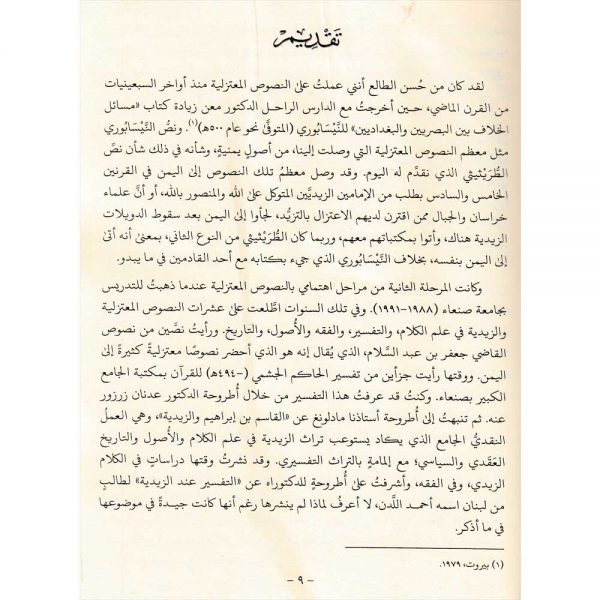 تَقْدِيم
لقد كان من حُسن الطالع أنني عملتُ على النصوص المعتزلية منذ أواخر السبعينيات
من القرن الماضي، حين أخرجتُ مع الدارس الراحل الدكتور معن زيادة كتاب «مسائل
الخلاف بين البصريين والبغداديين» للنَّيْسَابُوري (المتوفَّى نحو عام ٥٠٠هـ)(١). ونصُّ النَّيْسَابُوري
مثل معظم النصوص المعتزلية التي وصلت إلينا، من أصولٍ يمنيةٍ، وشأنه في ذلك شأن نصِّ
الطُّرَيْثيثي الذي نقدِّم له اليوم. وقد وصل معظمُ تلك النصوص إلى اليمن في القرنين
الخامس والسادس بطلب من الإمامين الزيديَّين المتوكل على الله والمنصور بالله، أو أنَّ علماء
خراسان والجبال ممن اقترن لديهم الاعتزال بالتزيُّد، لجأوا إلى اليمن بعد سقوط الدويلات
الزيدية هناك، وأتوا بمكتباتهم معهم، وربما كان الطُّرَيْثيثي من النوع الثاني، بمعنى أنه أتى
إلى اليمن بنفسه، بخلاف النَّيْسَابُوري الذي جيء بكتابه مع أحد القادمين في ما يبدو.
وكانت المرحلة الثانية من مراحل اهتمامي بالنصوص المعتزلية عندما ذهبتُ للتدريس
بجامعة صنعاء (١٩٨٨-١٩٩١). وفي تلك السنوات اطَّلعت على عشرات النصوص المعتزلية
والزيدية في علم الكلام، والتفسير، والفقه والأُصول، والتاريخ. ورأيتُ نصَّين من نصوص
القاضي جعفر بن عبد السلَّام، الذي يُقال إنه هو الذي أحضر نصوصًا معتزليةً كثيرةً إلى
اليمن. ووقتها رأيت جزأين من تفسير الحاكم الجشمي (-٤٩٤هـ) للقرآن بمكتبة الجامع
الكبير بصنعاء. وكنتُ قد عرفتُ هذا التفسير من خلال أُطروحة الدكتور عدنان زرزور
عنه. ثم تنبهتُ إلى أُطروحة أستاذنا مادلونغ عن «القاسم بن إبراهيم والزيدية»، وهي العملُ
النقديُّ الجامع الذي يكاد يستوعب تراث الزيدية في علم الكلام والأُصول والتاريخ
العَقَدي والسياسي؛ مع إلمامةٍ بالتراث التفسيري. وقد نشرتُ وقتها دراساتٍ في الكلام
الزيدي، وفي الفقه، وأشرفتُ على أُطروحةٍ للدكتوراه عن «التفسير عند الزيدية» لطالبٍ
من لبنان اسمه أحمد اللَّدن، لا أعرفُ لماذا لم ينشرها رغم أنها كانت جيدةً في موضوعها
في ما أذكر.
(١) بيروت، ١٩٧٩.
- ٩ -